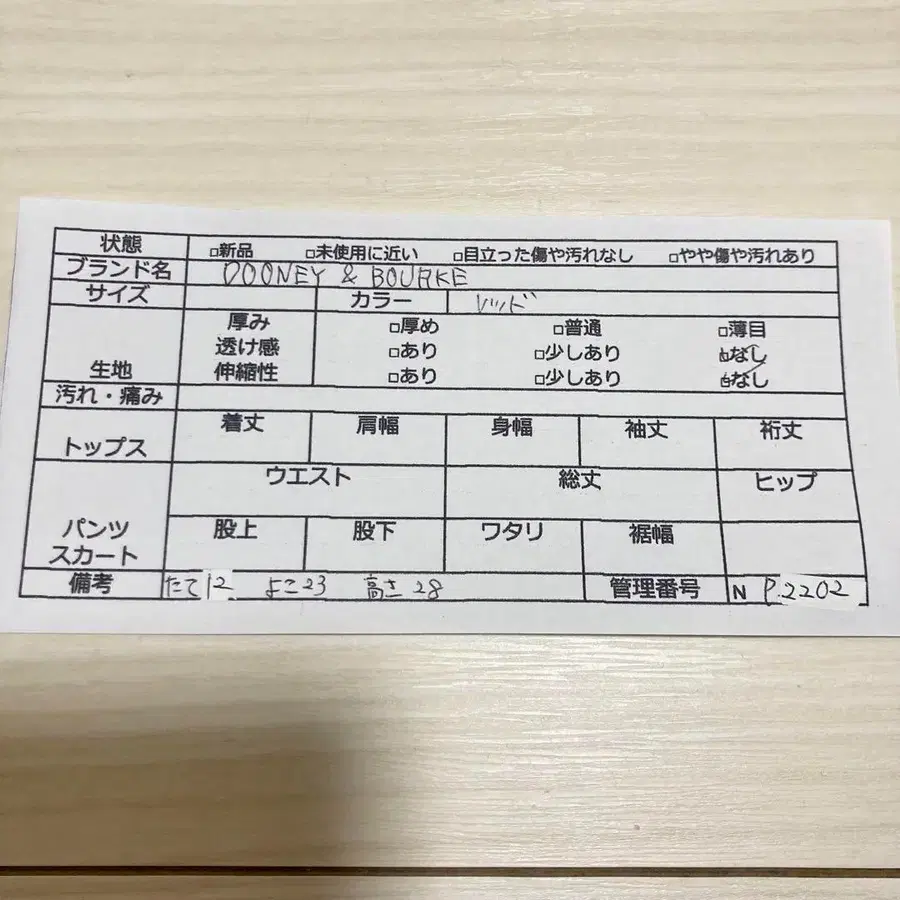 状態 □新品 □未使用に近い □目立った傷や汚れなし □やや傷や汚れあり
ブランド名 DOONEY & BOURKE
サイズ カラー レッド
厚み □厚め □普通 □薄目
透け感 □あり □少しあり □なし
生地 伸縮性 □あり □少しあり □なし
汚れ・痛み
トップス 着丈 肩幅 身幅 袖丈 裄丈
ウエスト 総丈 ヒップ
パンツ 股上 股下 ワタリ 裾幅
スカート
備考 たて12 よこ23 高さ28 管理番号 N P.2202